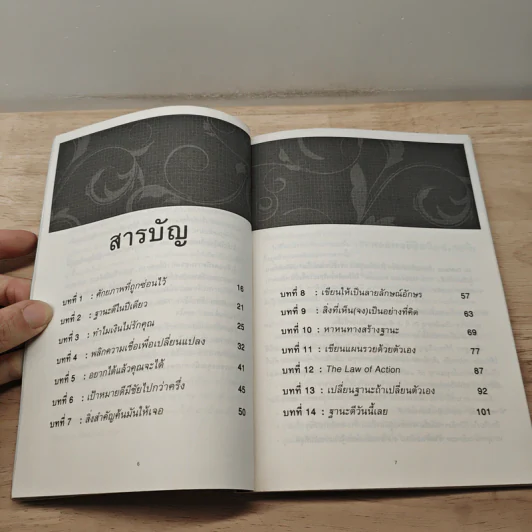 สารบัญ
บทที่ 1 : ศักยภาพที่ถูกซ่อนไว้ 16
บทที่ 2 : ฐานะดีในปีเดียว 21
บทที่ 3 : ทำไมเงินไม่รักคุณ 25
บทที่ 4 : พลิกความเชื่อเพื่อเปลี่ยนแปลง 32
บทที่ 5 : อยากได้แล้วคุณจะได้ 41
บทที่ 6 : เป้าหมายดีมีชัยไปกว่าครึ่ง 45
บทที่ 7 : สิ่งสำคัญค้นมันให้เจอ 50
6
บทที่ 8 : เขียนให้เป็นลายลักษณ์อักษร 57
บทที่ 9 : สิ่งที่เห็น(จง)เป็นอย่างที่คิด 63
บทที่ 10 : หาหนทางสร้างฐานะ 69
บทที่ 11 : เขียนแผนรวยด้วยตัวเอง 77
บทที่ 12 : The Law of Action 87
บทที่ 13 : เปลี่ยนฐานะถ้าเปลี่ยนตัวเอง 92
บทที่ 14 : ฐานะดีวันนี้เลย 101
7